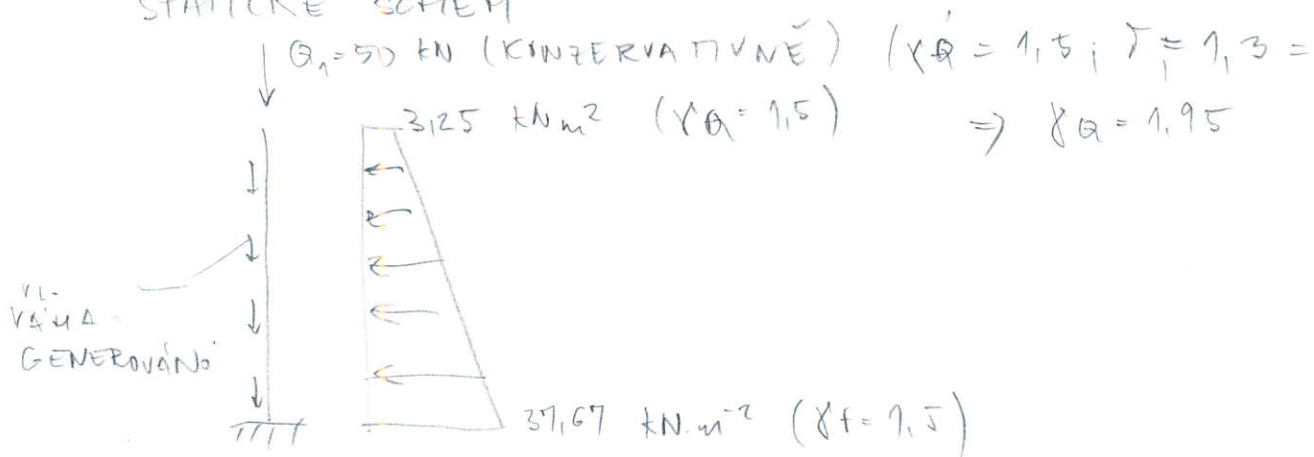 STATICKÉ SCHÉM
Q₁=50 kN (KONZERVATIVNĚ) (γQ = 1,5; = 1,3 =
3,25 kNm² (γQ = 1,5) => γQ = 1,95
VL.
VÁHA
GENEROVÁNO
37,67 kN.m⁻² (γf = 1,5)